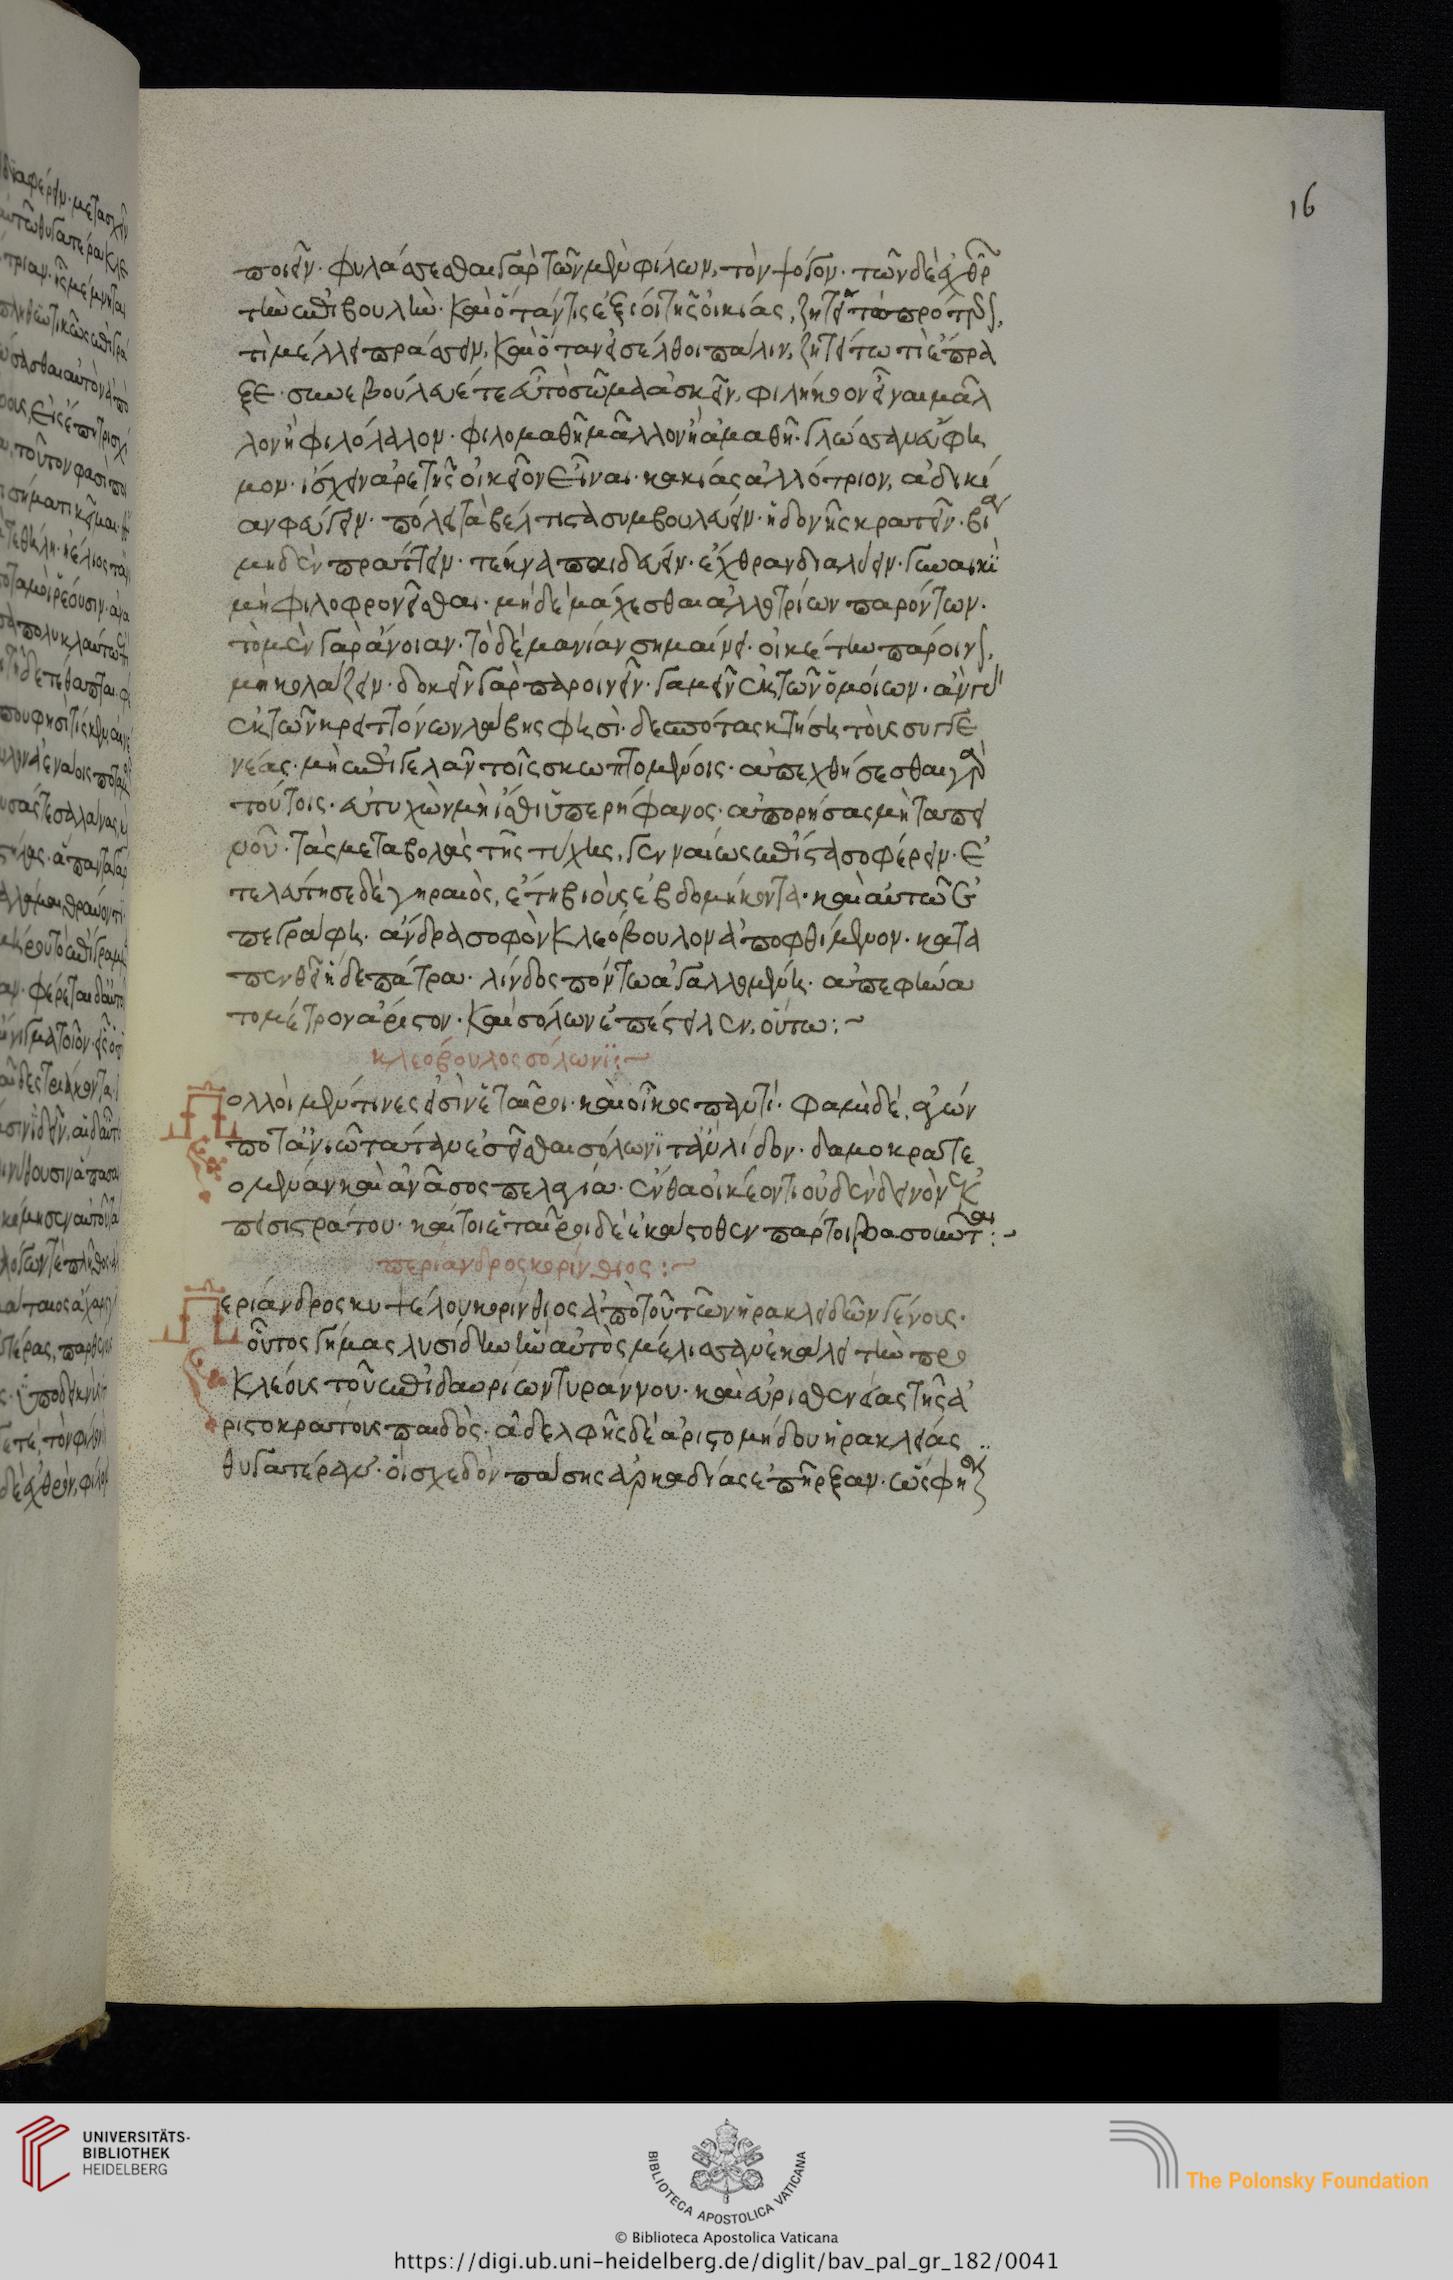 16
ποιεῖν· φυλάσσεσθαι γὰρ τῶν μὲν φίλων, τὸν ψόγον· τῶν δὲ ἐχθρῶν
τὴν ἐπιβουλήν· καὶ ὅταν τις ἐξίοι τῆς οἰκίας, ζητείτω πρότερον,
τί μέλλει πράσσειν, καὶ ὅταν εἰσέλθοι πάλιν, ζητείτω τί ἔπρα
ξε· συνεβούλευέ τε εὖ τὸ σῶμα ἀσκεῖν, φιλήκοον εἶναι μᾶλ
λον ἢ φιλόλαλον· φιλομαθῆ μᾶλλον ἢ ἀμαθῆ· γλῶσσαν εὔφη
μον· ἴσχειν ἀρετῆς οἰκεῖον εἶναι· κακίας ἀλλότριον, ἀδικί
αν φεύγειν· πόλει τὰ βέλτιστα συμβουλεύειν· ἡδονῆς κρατεῖν· βίᾳ
μηδὲν πράττειν· τέκνα παιδεύειν· ἔχθραν διαλύειν· γυναικὶ
μὴ φιλοφρονεῖσθαι· μηδὲ μάχεσθαι ἀλλοτρίων παρόντων·
τὸ μὲν γὰρ ἄνοιαν· τὸ δὲ μανίαν σημαίνει· οἰκέτην πάροινον,
μὴ κολάζειν· δοκεῖν γὰρ παροινεῖν· γαμεῖν ἐκ τῶν ὁμοίων· ἂν γὰρ
ἐκ τῶν κρειττόνων λάβῃς φησὶ· δεσπότας κτήσῃ τοὺς συγγε
νέας· μὴ ἐπιγελᾶν τοῖς σκωπτομένοις· ἀπεχθήσεσθαι γὰρ
τούτοις· εὐτυχῶν μὴ ἴσθι ὑπερήφανος· ἀπορήσας μὴ ταπει
νοῦ· τὰς μεταβολὰς τῆς τύχης, γενναίως ἐπίστασο φέρειν· ἐ
τελεύτησε δὲ γηραιὸς, ἔτη βιοὺς ἑβδομήκοντα· καὶ αὐτῷ ἐ
πεγράφη· ἄνδρα σοφὸν Κλεόβουλον ἀποφθίμενον· κατα
πενθεῖ ἥδε πάτρα· λίνδος πόντῳ ἀγαλλομένη· ἀπεφθέγξα
το μέτρον ἄριστον· καὶ σόλωνι ἐπέστειλεν, οὕτω:~
κλεόβουλος σόλωνϊ:~
Πολλοὶ μέν τινες εἰσὶν ἕταιροι· καὶ οἶκος πάντι· φαμὶ δὲ, ἐγὼν
ποτάνιωτάταν ἐσεῖσθαι σόλωνϊ τὰν λίνδον· δαμοκρατε
ομέναν καὶ ἁ νᾶσος πελαγία· ἔνθα οἰκέοντι οὐδὲν δεινὸν ἐκ
πεισιστράτου· καὶ τοὶ ἕταιροι δὲ ἑκάστοθεν παρ τοι βασοῦνται:~
περίανδρος κορίνθιος:~
Περίανδρος κυψέλου κορίνθιος ἀπὸ τοῦ τῶν ἡρακλειδῶν γένους·
οὗτος γήμας λυσίδην ἣν αὐτὸς μέλισσαν ἐκάλει τὴν προ
κλέους τοῦ ἐπιδαυρίων τυράννου· καὶ ἐρισθενείας τῆς ἀ
ριστοκράτους παιδὸς· ἀδελφῆς δὲ ἀριστομήδου ἡρακλείας
θυγατέρα· οἳ σχεδὸν πάσης ἀρκαδίας ἐπῆρξαν· ὥς φη
UNIVERSITÄTS-
BIBLIOTHEK
HEIDELBERG
BIBLIOTECA APOSTOLICA VATICANA
The Polonsky Foundation
© Biblioteca Apostolica Vaticana
https://digi.ub.uni-heidelberg.de/diglit/bav_pal_gr_182/0041